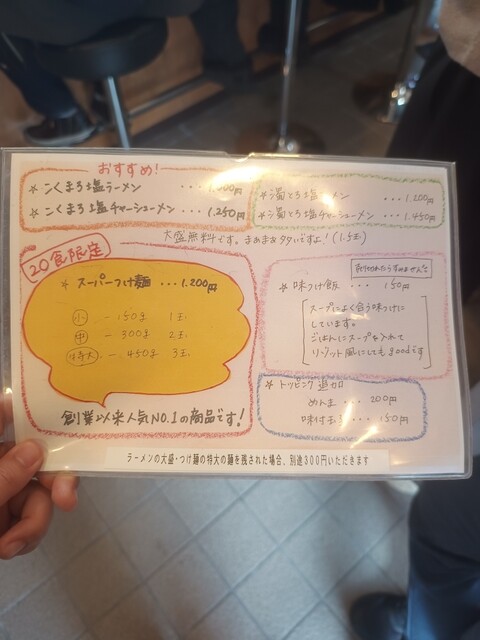 おすすめ!
☆ こくまろ塩ラーメン ・・・1.000円
☆ こくまろ塩チャーシューメン ・・・1.250円
☆ 濁とろ塩ラーメン ・・・1.200円
☆ 濁とろ塩チャーシューメン ・・・1.450円
大盛無料です。まぁまぁタタいですよ!(1.5玉)
20食限定
☆ スーパーつけ麺 ・・・1.200円
小 - 150g 1玉
中 - 300g 2玉
特大 - 450g 3玉
創業以来人気NO.1の商品です!
売り切れたらすみません
☆ 味つけ飯 ・・・ 150円
スープによく合う味つけに
しています。
ごはんにスープを入れて
リゾット風にしてもgoodです
☆ トッピング 追加
めんま ・・・ 200円
味付玉子 ・・・ 150円
ラーメンの大盛・つけ麺の特大の麺を残された場合、別途300円いただきます